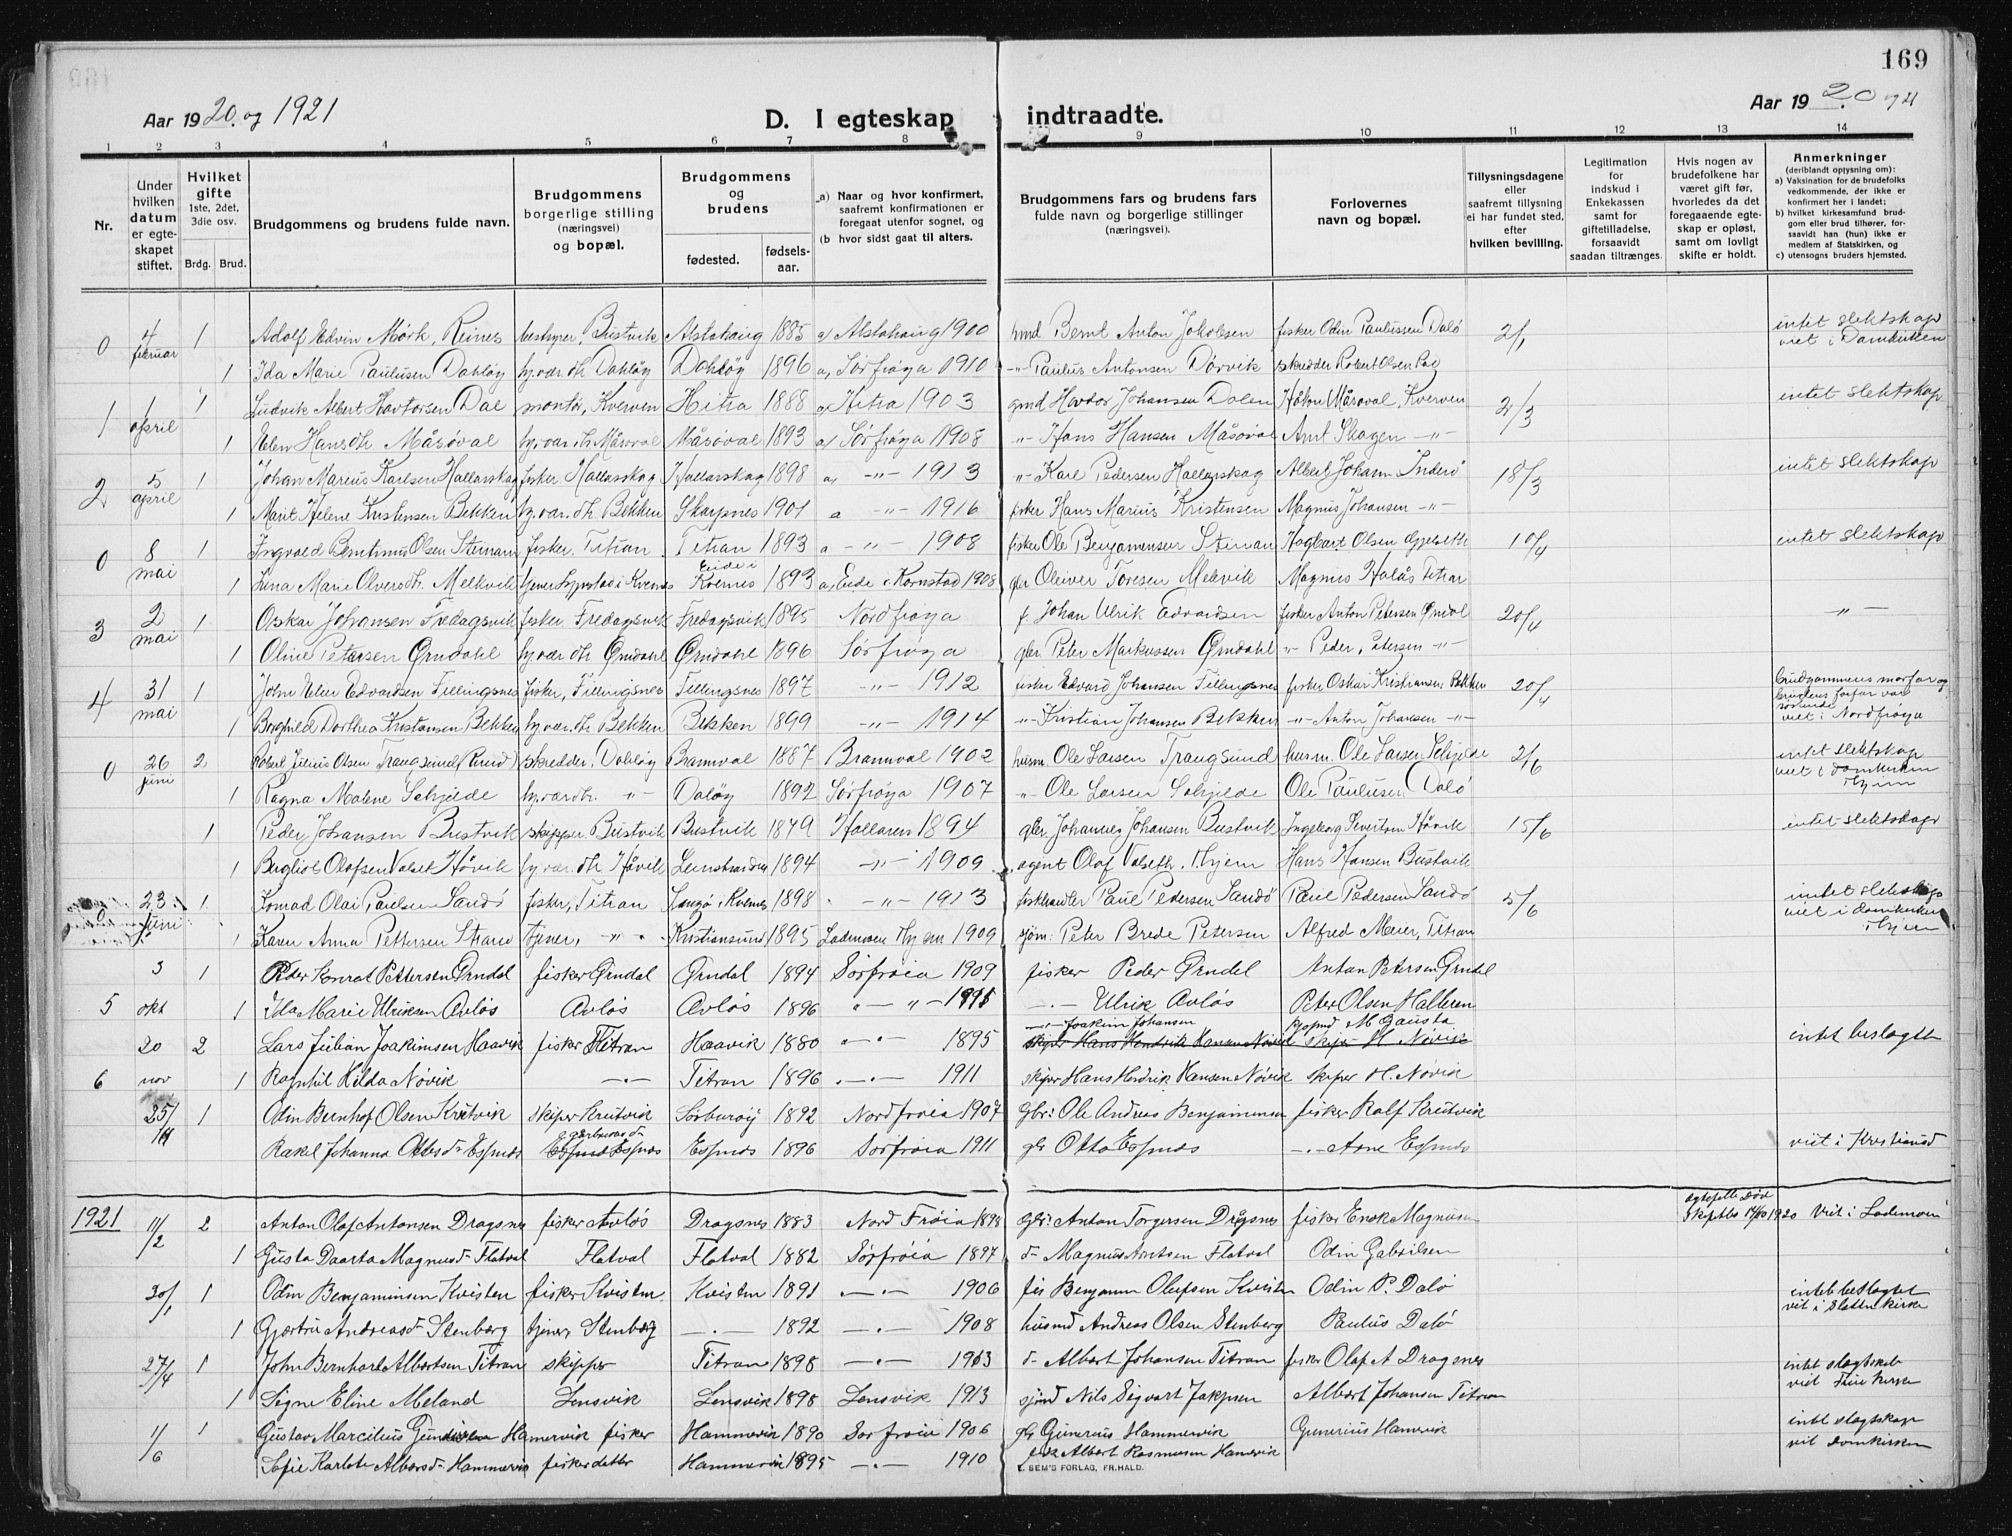 169
Aar 1920. og 1921
D. I egteskap indtraadte.
Aar 1920 og 21
1 2 3 4 5 6 7 8 9 10 11 12 13 14
Nr.
Under hvilken datum er egteskapet stiftet.
Hvilket gifte 1ste, 2det, 3die osv.
Brdg. Brud.
Brudgommens og brudens fulde navn.
Brudgommens borgerlige stilling (næringsvei) og bopæl.
Brudgommens og brudens
fødested.
fødsels-aar.
a) Naar og hvor konfirmert, saafremt konfirmationen er foregaat utenfor sognet, og
(b hvor sidst gaat til alters.
Brudgommens fars og brudens fars fulde navn og borgerlige stillinger (næringsvei).
Forlovernes navn og bopæl.
Tillysningsdagene eller saafremt tillysning ei har fundet sted, efter hvilken bevilling.
Legitimation for indskud i Enkekassen samt for giftetilladelse, forsaavidt saadan tiltrænges.
Hvis nogen av brudefolkene har været gift før, hvorledes da det foregaaende egteskap er opløst, samt om lovligt skifte er holdt.
Anmerkninger (deriblandt oplysning om):
a) Vaksination for de brudefolks vedkommende, der ikke er konfirmert her i landet;
b) hvilket kirkesamfund brudgom eller brud tilhører, forsaavidt han (hun) ikke er medlem af Statskirken, og
c) utensogns bruders hjemsted.
0 4 februar 1 Adolf Edvin Mørk, Reines bestyrer, Bustvik Alstahaug 1885 a) Alstahaug 1900 hmd Bernt Anton Jakobsen fisker Odin Paulissen Dalø 2/1 intet slektskap viet i Domkirken
1 Ida Marie Paulusen Dahløy hy.vær. dtr Dahløy Dahløy 1896 a, Sørfrøya 1910 -"- Paulus Antonsen Dørvik skredder Robert Olsen
1 1 april 1 Ludvik Albert Havtorsen Dal montør, Kverven Hitra 1888 a) Hitra 1903 gmd Havdor Johansen Dalen Håkon Måsøval, Kverven 2/3 intet slektskap
1 Elen Hansdtr Måsøval hy.vær. dtr Måsøval Måsøval 1893 a) Sørfrøya 1908 -"- Hans Hansen Måsøval Arnt Skagen -"-
2 5 april 1 Johan Marius Karlsen Hallarskag fisker Hallarskag Hallarskag 1898 a, -"- 1913 -"- Karl Pedersen Hallarskag Albert Johansen Inderø 18/3 intet slektskap
1 Marit Helene Kristensen Bekken hy.vær. dtr. Bekken Skarpnes 1901 a -"- 1916 fisker Hans Marius Kristensen Magnus Johansen -"-
0 8 mai 1 Ingvald Berntinus Olsen Steinan fisker. Titran Titran 1893 a -"- 1908 fisker Ole Benjaminsen Steinan Hagbart Olsen Gjelseth 10/4 intet slektskap
1 Lina Marie Olversdtr. Melkvik tjener i Kvernes Eide i Kvernes 1893 a, Eide i Kornstad 1908 gbr Oliver Toresen Melkvik Magnus Halås Titran
3 2 mai 1 Oskar Johansen Fredagsvik fisker Fredagsvik Fredagsvik 1895 Nordfrøya f Johan Ulrik Edvardsen fisker Anton Petersen Ørndal 20/4 -"-
1 Oline Petersen Ørndahl hy.vær dtr Ørndahl Ørndahl 1896 Sørfrøya gbr. Peter Markussen Ørndahl -"- Peder Petersen -"-
4 31 mai 1 John Elier Edvardsen Fillingsnes fisker, Fillingsnes Fillingsnes 1897 -"- 1912 fisker Edvard Johansen Fillingsnes fisker Oskar Kristiansen Bekken 20/4 brudgommens morfar og brudens farfar var søskende viet i Nordfrøya
1 Borghild Dorthea Kristiansen Bekken hy.vær. dtr Bekken Bekken 1899 -"- 1914 -"- Kristian Johansen Bekken -"- Anton Johansen -"-
0 26 juni 2 Robert Julius Olsen Trangsund skredder, Dahløy Bramval 1887 Bramval 1902 husm. Ole Larsen Trangsund husm. Ole Larsen Schjelde 2/6 intet slektskap viet i domkirken Thjem
1 Ragna Malene Schjelde hy.vær dtr. -"- Daløy 1892 Sørfrøya 1907 -"- Ole Larsen Schjelde Ole Paulusen Dalø
1 Peder Johansen Bustvik skipper Bustvik Bustvik 1879 Hallaren 1894 gbr. Johannes Johansen Bustvik Ingeborg Håvik 15/6 intet slektskap
1 Bergliot Olafsen Valset Håvik hy.vær. dtr. Håvik Leinstranden 1894 -"- 1909 agent Olaf Valseth. Thjem Hans Hansen Bustvik
0 23 juni 1 Konrad Olai Paulsen Sandø fisker, Titran i Kvernes 1898 -"- 1913 fiskhandler Paul Pedersen Sandø Paul Pedersen Sandø 5/6 intet slektskap viet i domkirken Thjem
1 Karen Anna Pettersen tjener, -"- Kristiansund 1895 Lademoen Thjem 1909 sjøm. Peter Brede Petersen Alfred Meier, Titran
5 3 okt 1 Peder Konrat Pettersen Ørndal fisker Ørndal Ørndal 1894 Sørfrøia 1909 fisker Peder Ørndal Anton Petersen Ørndal
1 Ida Marie Ulriksen Avløs Avløs Avløs 1896 " - " - 1911 -.- Ulrik Avløs Peter Olsen Hallaren
6 20 nov 2 Lars Julian Joakimsen Haavik fisker Titran Haavik 1880 -"- 1895 -"- Joakim Johansen skiper Hans Hendrik Hansen Nøvik M Gausta skiper H. Nøvik intet beslagtet
1 Ragnhil Hilda Nøvik -.- Titran 1896 -.- 1911 skiper Hans Hendrik Hansen Nøvik skiper H. Nøvik
25/11 1 Odin Bernhof Olsen Krutvik skiper Krutvik Sørburøy 1892 Nordfrøia 1907 gbr: Ole Andreas Benjaminsen fisker Ralf Krutvik
Rakel Johanna Ottesdr Espnæs gaarbrurdr Espnæs Espnæs 1896 Sørfrøia 1911 gbr Otto Espnæs -.- Arne Espnæs viet i Kristiansd
1921 11/2 2 Anton Olaf Antonsen Dragsnes fisker Avløs Dragsnes 1883 Nord Frøia 1898 gbr: Anton Torgersen Dragsnes fisker Enok Magnusen egtefelle død skiftebv 1920 Viet i Lademoen
1 Gusta Daarta Magnusdr Flatval Flatval Flatval 1882 Sørfrøia 1897 dr Magnus Antsen Flatval Odin Gabrielsen
20/1 1 Odin Benjaminsen Kvisten fisker Kvisten Kvisten 1891 -.- 1906 fis Benjamin Olufsen Kvisten Odin P. Dalø intet beslagtet viet i Sletten kirke
1 Gjærtru Andreasdr Stenberg tjener Stenberg -.- 1892 -.- 1908 husmd Andreas Olsen Stenberg Paulus Dalø
27/4 1 John Bernhart Albertsen Titran skipper Titran 1898 -.- 1913 dr Albert Johansen Titran fisker Olaf A Dragsnes intet slagtskab viet kirke
1 Signe Eline Meland Lensvik Lensvik 1898 Lensvik 1913 sjømd Nils Sigvart Jakopsen Albert Johansen Titran
11/6 1 Gustav Marcilius Hamervik fisker Hammervik 1890 Sørfrøia 1906 gbr Gunerius Hammervik Gunerius Hamervik intet slagtskap viet domkirken
Sofie Karlote Albersdr Hammervik fiskerdatter Hammervik 1895 -.- 1910 fisk Albert Rasmussen Hamervik
E. SEM'S FORLAG, FR.HALD.